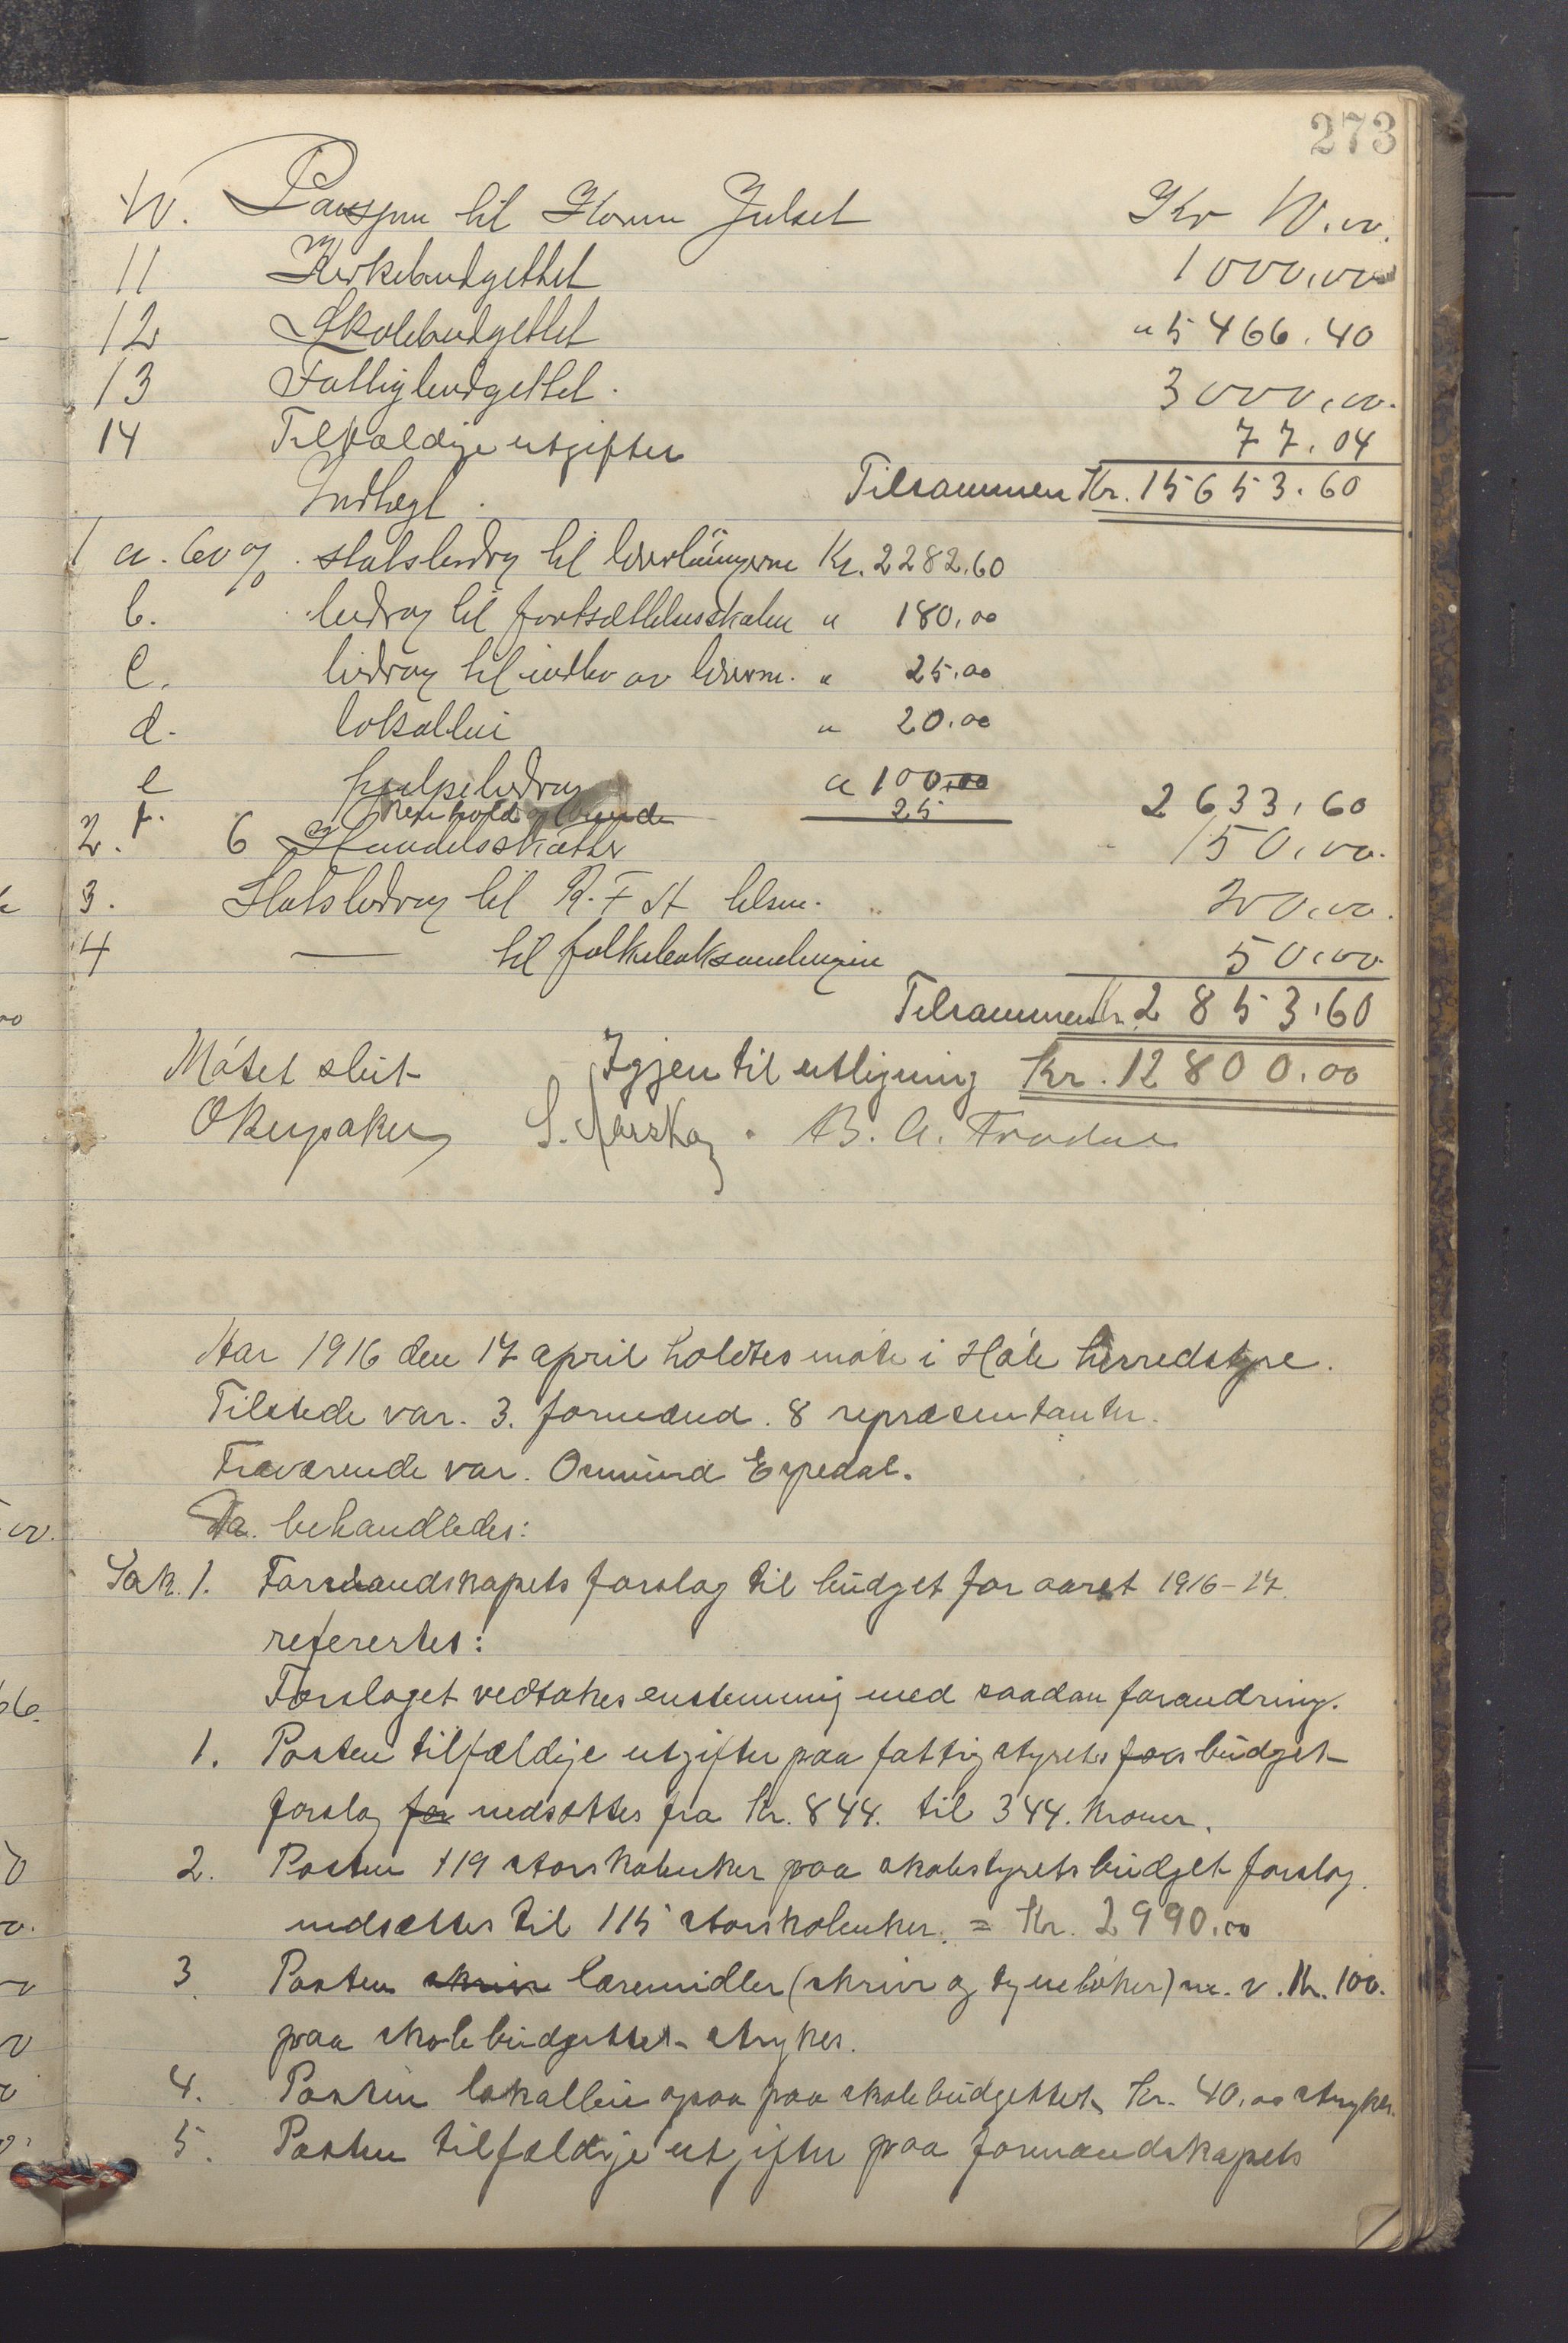 273
10. Pansjon til Jorun Julset Kr 10.00.
11 Kirkebudgettet 1000,00
12 Skolebudgettet " 5466.40
13 Fattigbudgettet. 3000,00.
14 Tilfældige utgifter 77.04
Indtægt. Tilsammen Kr. 15653.60
1 a. 60 % statsbidrag til lærerlönnerne Kr. 2282.60
b. bidrag til fortsættelsesskolen " 180.00
c. bidrag til av lærerne. " 25.00
d. lokalleie " 20.00
e hjelpebidrag " 100,00
f. Renhold og brende 25 2633,60
2. 6 Handelsskatter 150,00.
3. Statsbidrag til R. F. A 20,00.
4 — til folkeboksamlingen 50,00
Tilsammen Kr. 2853,60
Mötet slut Igjen til utligning Kr. 12800.00
S. Aarskog. B. A. Frodal
Aar 1916 den 17 april holdtes möte i Höle herredstyre.
Tilstede var. 3. formænd. 8 repræsentanter.
Fraværende var. Osmund Espedal.
Da. behandledes:
Sak. 1. Formandskapets forslag til budget for aaret 1916-17.
referertes:
Forslaget vedtakes enstemmig med saadan forandring.
1. Posten tilfældige utgifter paa fattigstyrets fors budget
forslag for nedsættes fra kr. 844. til 344. Kroner.
2. Posten 119 storskoleuker paa skolestyrets budget forslag.
nedsættes til 115 storskoleuker. = Kr. 2990.00
3 Posten skriv læremidler (skriv og tegneböker) m. v. Kr. 100.
paa skolebudgettet strykes.
4. Posten lokalleie ogsaa paa skolebudgettet Kr. 40.00 strykes.
5. Posten tilfældige utgifter paa formandskapets